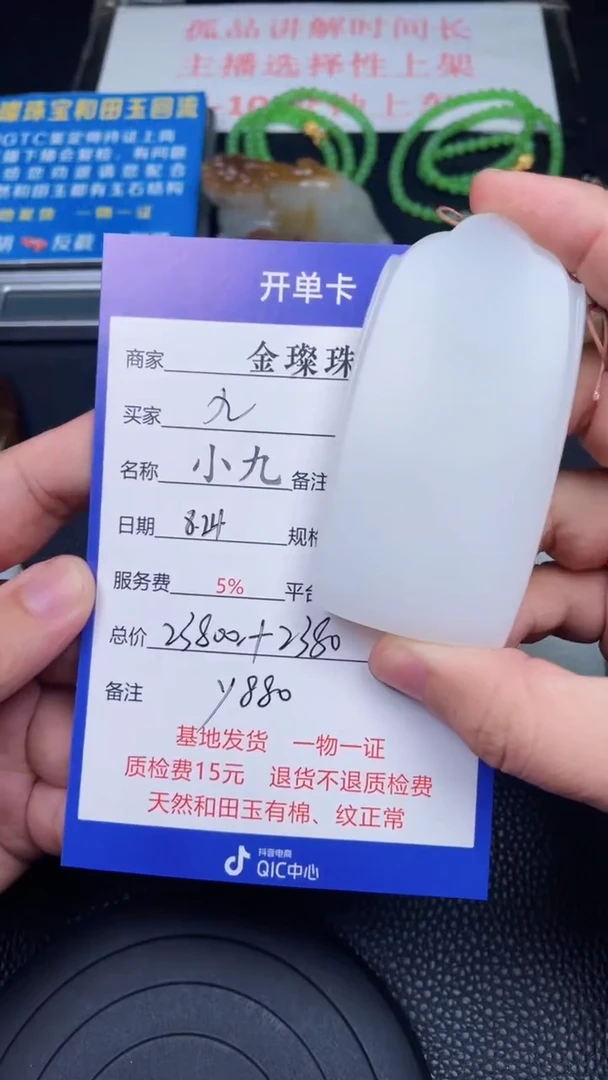 孤品讲解时间长
主播选择性上架
珠宝和田玉回流
然和田玉都有玉石结构
一物一证
开单卡
商家 金璨珠
买家 九
名称 小九 备注
日期 8.24 规格
服务费 5% 平台
总价 23800+2380
备注 y880
基地发货 一物一证
质检费15元 退货不退质检费
天然和田玉有棉、纹正常
抖音电商
QIC中心